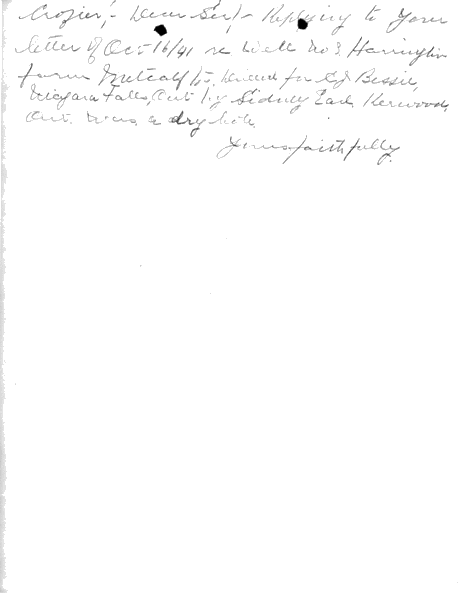 Crozier,- Dear Sir,- Replying to your
letter of Oct 16/41 re Well No 3 Harrington
farm Metcalf Tp. Drilled for
Niagara Falls, Ont. by Sidney Earl Kerwood,
Ont. was a dry hole.
Yours faithfully.